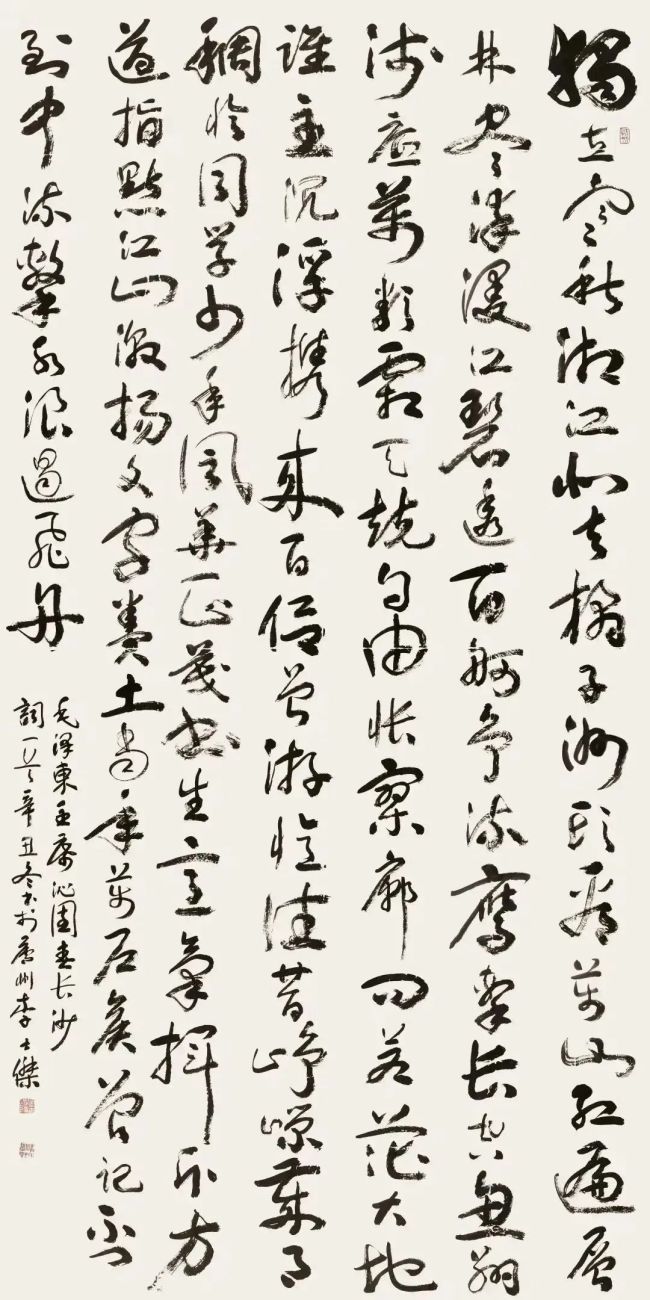 獨立寒秋湘江北去橘子洲頭看萬山紅遍層
林盡染漫江碧透百舸爭流鷹擊長空魚翔
淺底萬類霜天競自由悵寥廓問蒼茫大地
誰主沉浮攜來百侶曾游憶往昔崢嶸歲月
稠恰同學少年風華正茂書生意氣揮斥方
遒指點江山激揚文字糞土當年萬戶侯曾記否
到中流擊水浪遏飛舟
毛澤東主席沁園春長沙
詞一首辛丑冬書於廣州李士傑